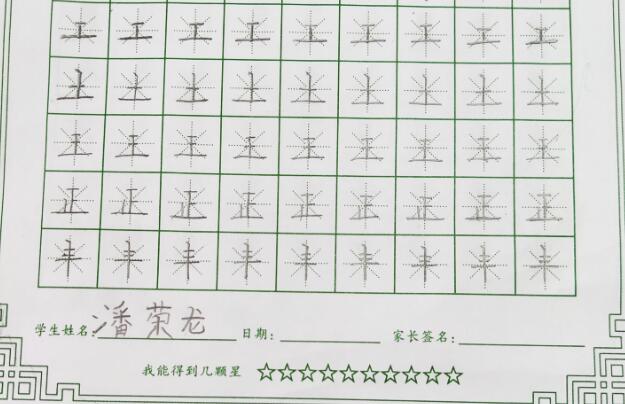 工工工工工工工工工
上上上上上上上上上
王王王王王王王王王
正正正正正正正正正
丰丰丰丰丰丰丰丰丰
学生姓名:潘荣龙 日期: 家长签名:
我能得到几颗星 ☆☆☆☆☆☆☆☆☆☆